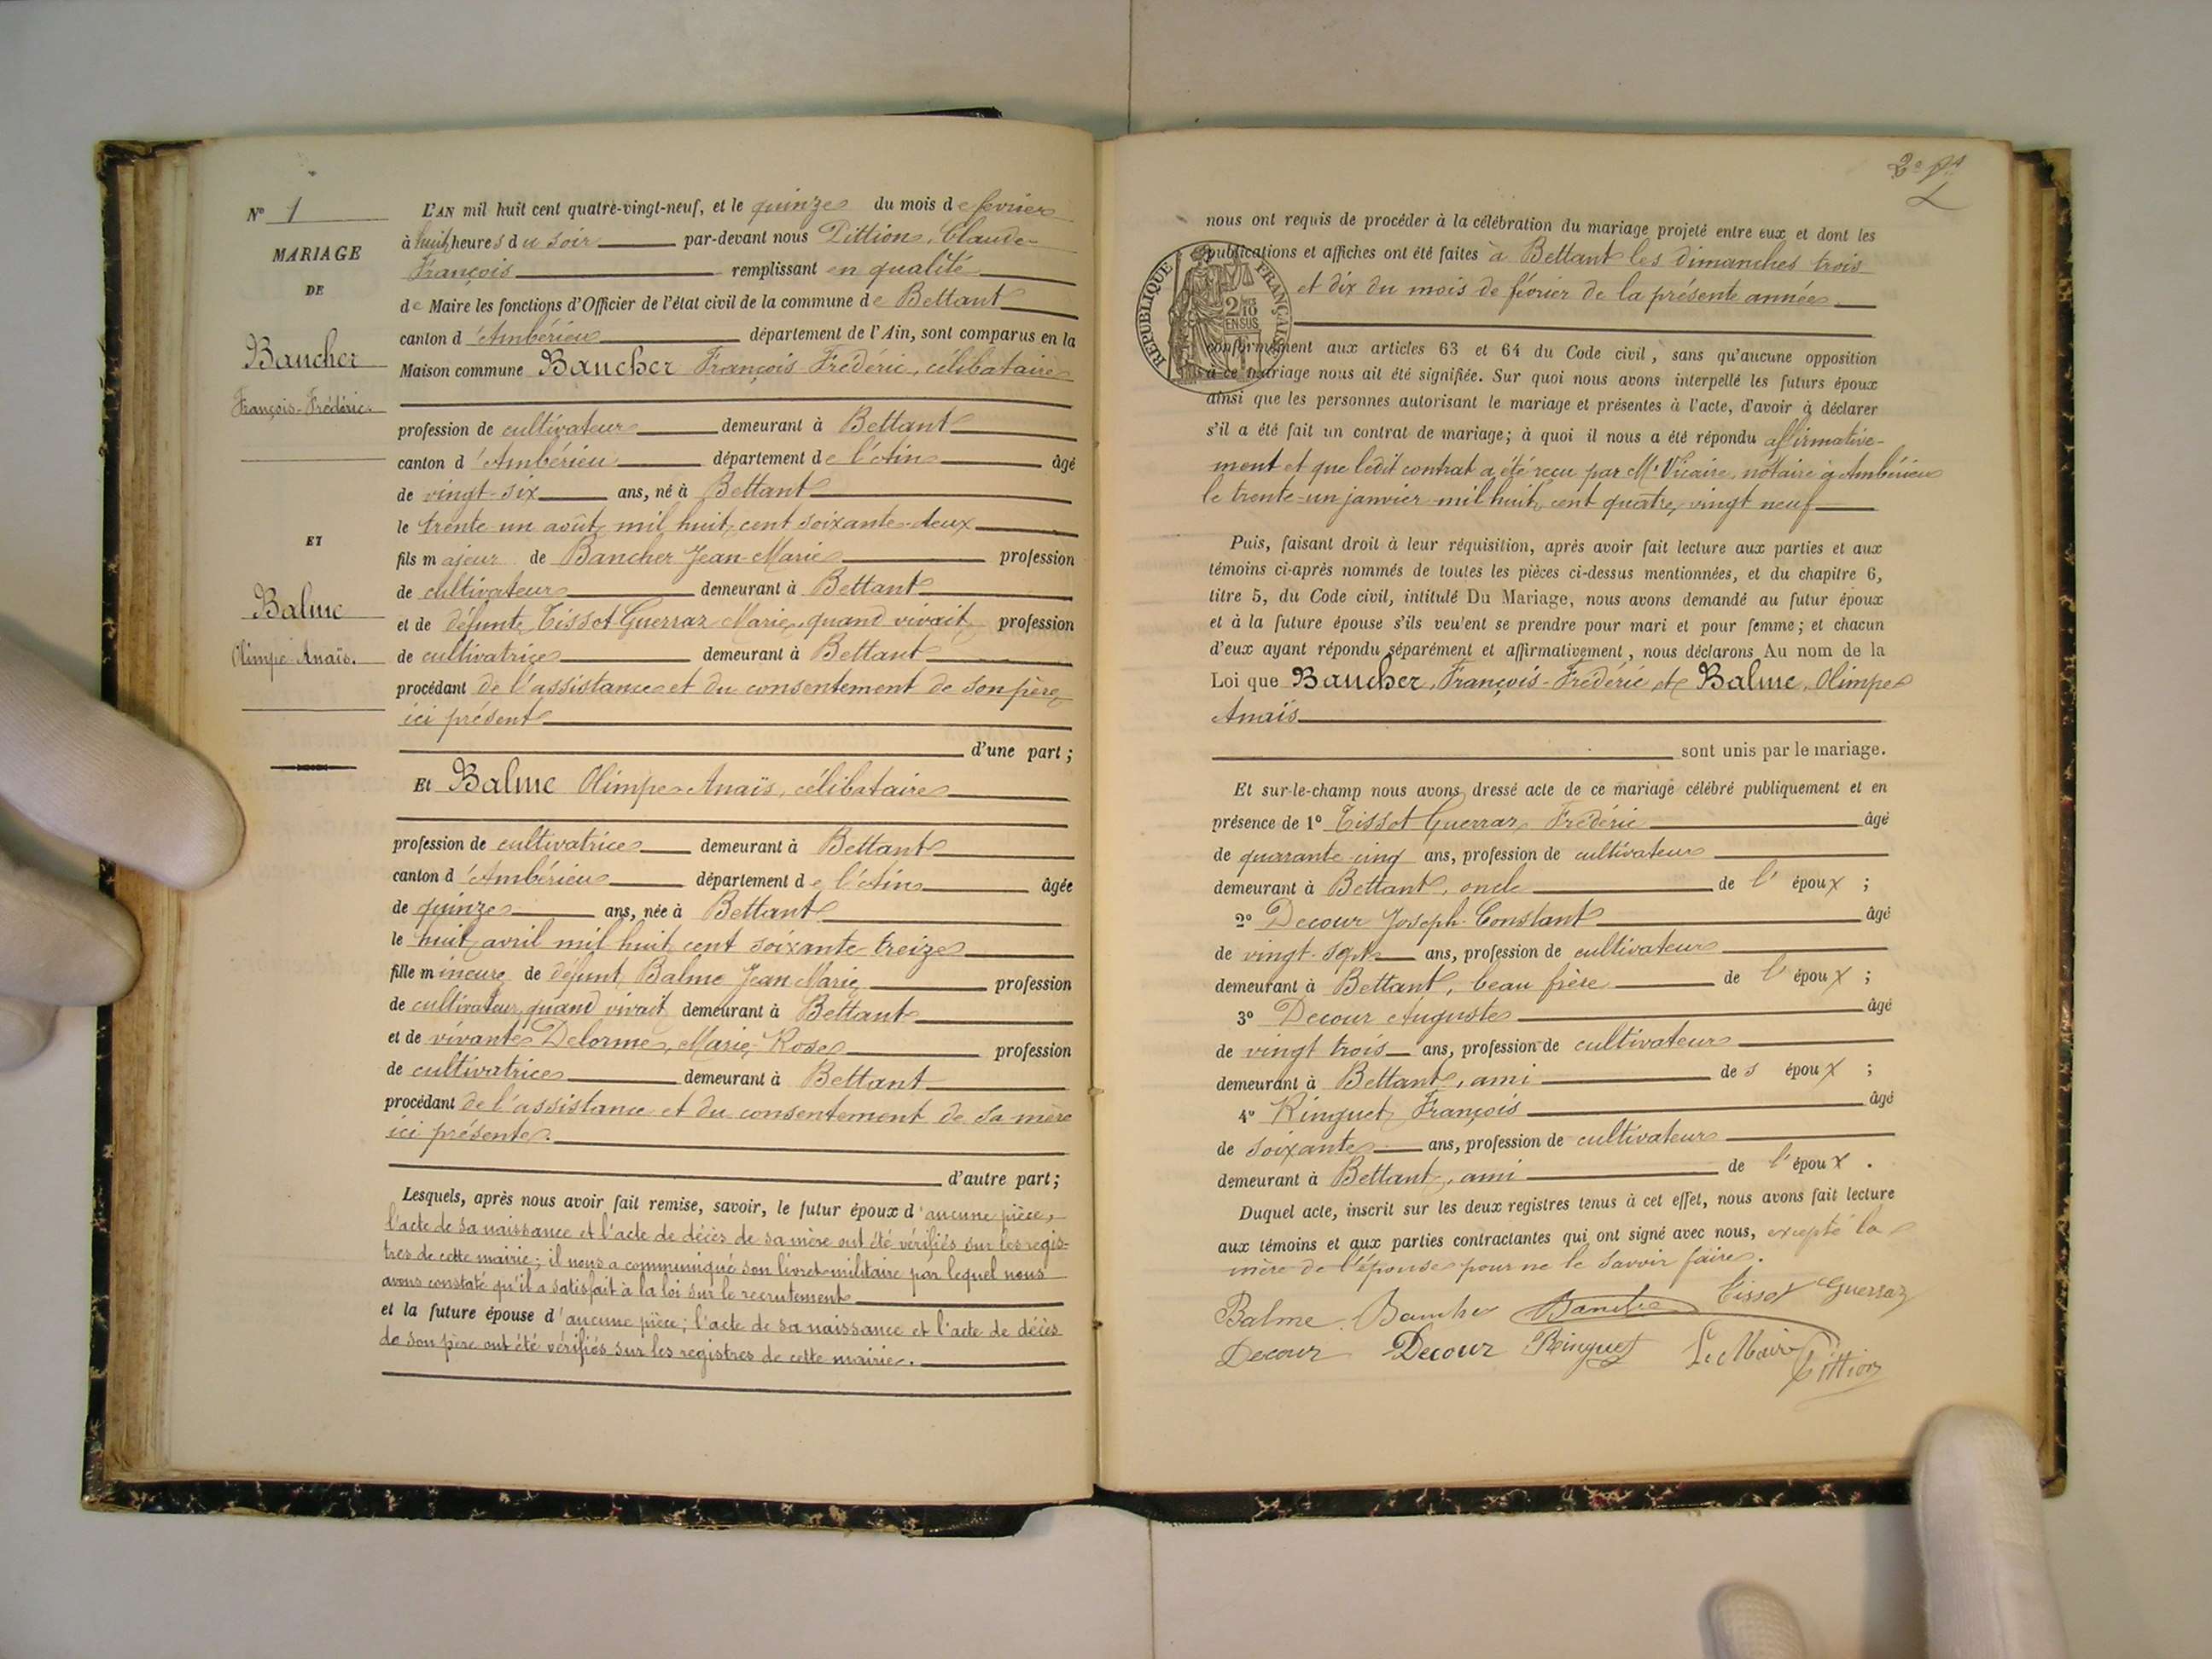 N° 1
MARIAGE
DE
Baucher
François-Frédéric.
ET
Balme
Olimpe-Anaïs.
L'AN mil huit cent quatre-vingt-neuf, et le quinze du mois de fevrier
à huit heures du soir par-devant nous Pittion, Claude-
François remplissant en qualité
de Maire les fonctions d'Officier de l'état civil de la commune de Bettant
canton d'Ambérieu département de l'Ain, sont comparus en la
Maison commune Baucher François-Frédéric, célibataire
profession de cultivateur demeurant à Bettant
canton d'Ambérieu département de l'Ain âgé
de vingt-six ans, né à Bettant
le trente un août mil huit cent soixante-deux
fils majeur de Baucher Jean-Marie profession
de cultivateur demeurant à Bettant
et de défunte Tissot Guerraz Marie, quand vivait profession
de cultivatrice demeurant à Bettant
procédant de l'assistance et du consentement de son père
ici présent
d'une part;
Et Balme Olimpe-Anaïs, célibataire
profession de cultivatrice demeurant à Bettant
canton d'Ambérieu département de l'Ain âgée
de quinze ans, née à Bettant
le huit avril mil huit cent soixante-treize
fille mineure de défunt Balme Jean Marie profession
de cultivateur, quand vivait demeurant à Bettant
et de vivante Delorme, Marie-Rose profession
de cultivatrice demeurant à Bettant
procédant de l'assistance et du consentement de sa mère
ici présente.
d'autre part;
Lesquels, après nous avoir fait remise, savoir, le futur époux d'aucune pièce,
l'acte de sa naissance et l'acte de décès de sa mère ont été vérifiés sur les regis-
tres de cette mairie; il nous a communiqué son livret militaire par lequel nous
avons constaté qu'il a satisfait à la loi sur le recrutement
et la future épouse d'aucune pièce; l'acte de sa naissance et l'acte de décès
de son père ont été vérifiés sur les registres de cette mairie.
2
nous ont requis de procéder à la célébration du mariage projeté entre eux et dont les
publications et affiches ont été faites à Bettant les dimanches trois
et dix du mois de février de la présente année
RÉPUBLIQUE FRANÇAISE
2/10
EN SUS
conformément aux articles 63 et 64 du Code civil, sans qu'aucune opposition
à ce mariage nous ait été signifiée. Sur quoi nous avons interpellé les futurs époux
ainsi que les personnes autorisant le mariage et présentes à l'acte, d'avoir à déclarer
s'il a été fait un contrat de mariage; à quoi il nous a été répondu affirmative-
ment et que ledit contrat a été reçu par Me Vicaire, notaire à Ambérieu
le trente-un janvier mil huit cent quatre vingt neuf
Puis, faisant droit à leur réquisition, après avoir fait lecture aux parties et aux
témoins ci-après nommés de toutes les pièces ci-dessus mentionnées, et du chapitre 6,
titre 5, du Code civil, intitulé Du Mariage, nous avons demandé au futur époux
et à la future épouse s'ils veulent se prendre pour mari et pour femme; et chacun
d'eux ayant répondu séparément et affirmativement, nous déclarons Au nom de la
Loi que Baucher, François-Frédéric et Balme, Olimpe
Anaïs
sont unis par le mariage.
Et sur-le-champ nous avons dressé acte de ce mariage célébré publiquement et en
présence de 1° Tissot Guerraz, Frédéric âgé
de quarante-cinq ans, profession de cultivateur
demeurant à Bettant, oncle de l'époux;
2° Decour Joseph-Constant âgé
de vingt-sept ans, profession de cultivateur
demeurant à Bettant, beau frère de l'époux;
3° Decour Auguste âgé
de vingt trois ans, profession de cultivateur
demeurant à Bettant, ami des époux;
4° Ringuet François âgé
de soixante ans, profession de cultivateur
demeurant à Bettant, ami de l'époux.
Duquel acte, inscrit sur les deux registres tenus à cet effet, nous avons fait lecture
aux témoins et aux parties contractantes qui ont signé avec nous, excepté la
mère de l'épouse pour ne le savoir faire.
Balme Baucher Baucher Tissot Guerraz
Decour Decour Ringuet Le Maire Pittion